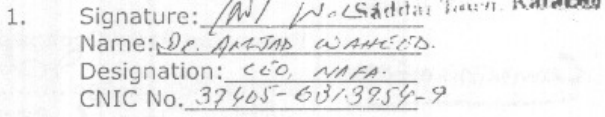 1. Signature: Saddar Town, Karachi
Name: Dr. AMJAD WAHEED.
Designation: CEO, NAFA.
CNIC No. 37405-6013954-9